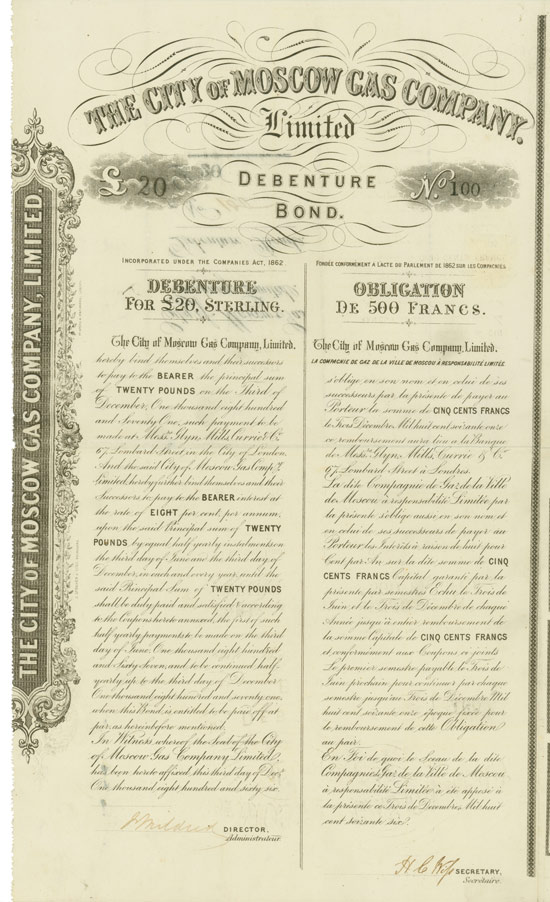 THE CITY OF MOSCOW GAS COMPANY.
Limited
£ 20
DEBENTURE
No. 100
BOND.
THE CITY OF MOSCOW GAS COMPANY, LIMITED.
INCORPORATED UNDER THE COMPANIES ACT, 1862
DEBENTURE
FOR £20, STERLING.
The City of Moscow Gas Company, Limited,
hereby bind themselves and their successors
to pay to the BEARER the principal sum
of TWENTY POUNDS on the Third of
December, One thousand eight hundred
and Seventy One, such payment to be
made at Messrs. Glyn, Mills, Currie & Co.
67, Lombard Street in the City of London.
And the said City of Moscow Gas Compy.
Limited hereby further bind themselves and their
Successors to pay to the BEARER interest at
the rate of EIGHT per cent. per annum,
upon the said Principal sum of TWENTY
POUNDS by equal half yearly instalments on
the third day of June and the third day of
December, in each and every year, until the
said Principal Sum of TWENTY POUNDS
shall be duly paid and satisfied according
to the Coupons hereto annexed, the first of such
half yearly payments to be made on the third
day of June, One thousand eight hundred
and Sixty seven, and to be continued half
yearly up to the third day of December
One thousand eight hundred and seventy one,
when this Bond is entitled to be paid off at
par, as hereinbefore mentioned.
In Witness whereof the Seal of the City
of Moscow Gas Company Limited,
has been hereto affixed this third day of Decr.
One thousand eight hundred and sixty six.
DIRECTOR,
Administrateur.
FONDÉE CONFORMÉMENT A L'ACTE DU PARLEMENT DE 1862 SUR LES COMPAGNIES
OBLIGATION
DE 500 FRANCS.
The City of Moscow Gas Company, Limited,
LA COMPAGNIE DE GAZ DE LA VILLE DE MOSCOU À RESPONSABILITÉ LIMITÉE.
s'oblige en son nom et en celui de ses
successeurs par la présente de payer au
Porteur la somme de CINQ CENTS FRANCS
le Trois Décembre Mil huit cent soixante onze
ce remboursement aura lieu a la Banque
de Messrs. Glyn, Mills, Currie & Co.
67, Lombard Street à Londres.
La dite Compagnie de Gaz de la Ville
de Moscou à responsabilité Limitée par
la présente s'oblige aussi en son nom et
en celui de ses successeurs de payer au
Porteur les Intérêts à raison de huit pour
Cent par An sur la dite somme de CINQ
CENTS FRANCS Capital garanti par la
présente par semestres Echu le Trois de
Juin et le Trois de Décembre de chaque
Année jusqu'à entier remboursement de
la somme Capitale de CINQ CENTS FRANCS
et conformément aux Coupons ci joints
Le premier semestre payable le Trois de
Juin prochain pour continuer par chaque
semestre jusqu'au Trois de Décembre Mil
huit cent soixante onze époque fixée pour
le remboursement de cette Obligation
au pair.
En Foi de quoi le sceau de la dite
Compagnie de Gaz de la Ville de Moscou
à responsabilité Limitée a été apposé à
la présente ce Trois de Décembre, Mil huit
cent soixante six.
SECRETARY,
Secrétaire.